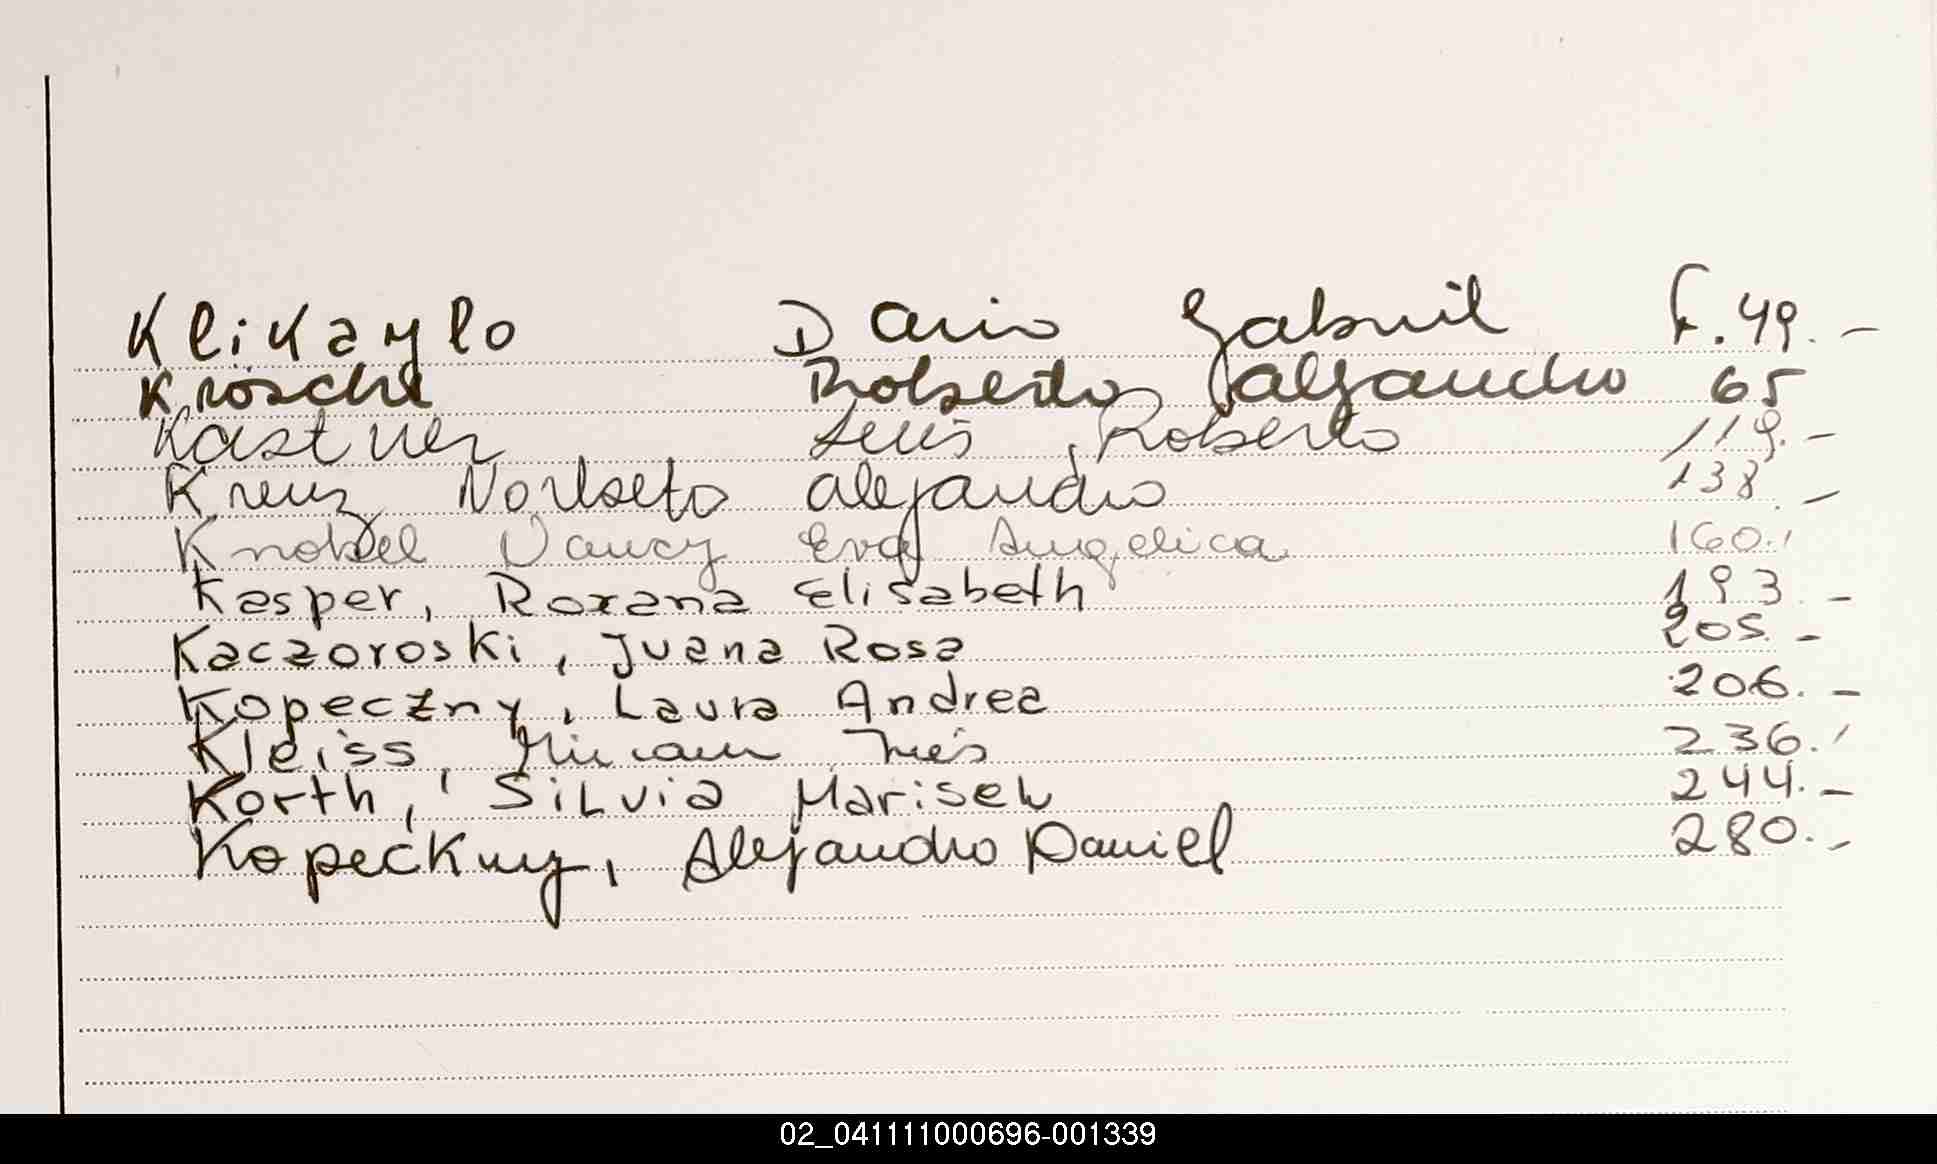 Klikaylo Dario Gabriel F. 49. -
Krösche Roberto Alejandro 65
Kastner Luis Roberto 119. -
Kreuz Norberto Alejandro 138. -
Knobel Nancy Eva Angelica 160. -
Kasper, Roxana Elisabeth 193. -
Kaczoroski, Juana Rosa 205. -
Kopeczny, Laura Andrea 206. -
Kleiss, Miriam Inés 236. -
Korth, Silvia Marisel 244. -
Kopeckny, Alejandro Daniel 280. -
02_041111000696-001339